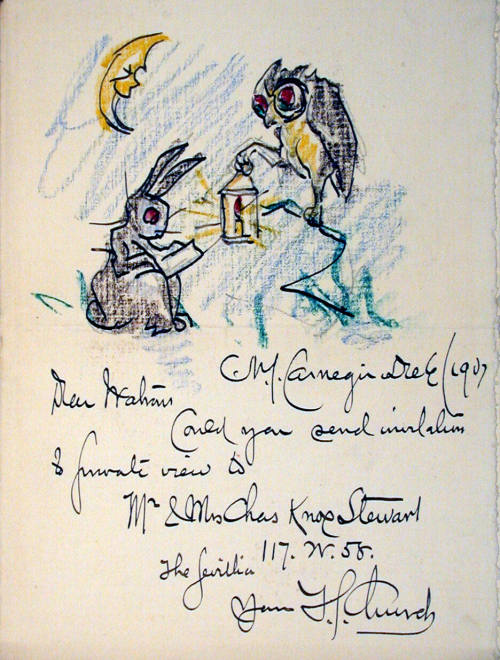 N.Y. Carnegie Dec 6/1907
Dear Watrous
Could you send invitation
to private view to
Mr & Mrs Chas Knox Stewart
117. W. 58.
The Sevillia
Yours F. S. Church